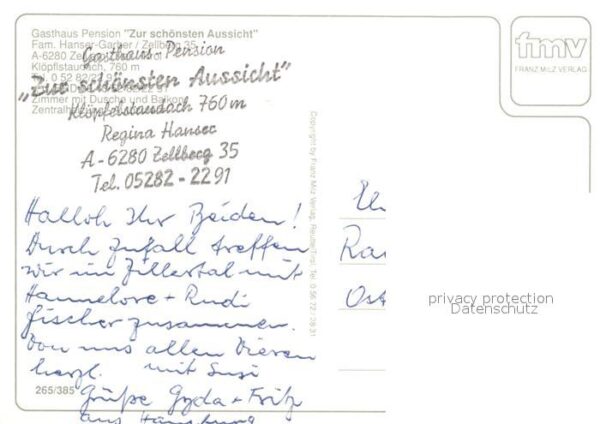 Gasthaus Pension "Zur schönsten Aussicht"
Fam. Hanser-Garber / Zellberg 35
A-6280 Zell
Klöpflstaudach, 760 m
Tel. 0 52 82/22 91
Zimmer mit Dusche und Balkon
Zentralheizung
Gasthaus-Pension
„Zur schönsten Aussicht"
Klöpfelstaudach 760 m
Regina Hanser
A-6280 Zellberg 35
Tel. 05282-2291
Halloh Ihr Beiden!
Durch Zufall treffen
wir im Zillertal mit
Hannelore + Rudi
Fischer zusammen.
Von uns allen Vieren
herzl. mit Susi
Grüße Gyda + Fritz
aus Hamburg
265/385
Copyright by Franz Milz Verlag, Reutte/Tirol, Tel. 0 56 72 / 28 31
fmv
FRANZ MILZ VERLAG
Ra
Ost
privacy protection
Datenschutz